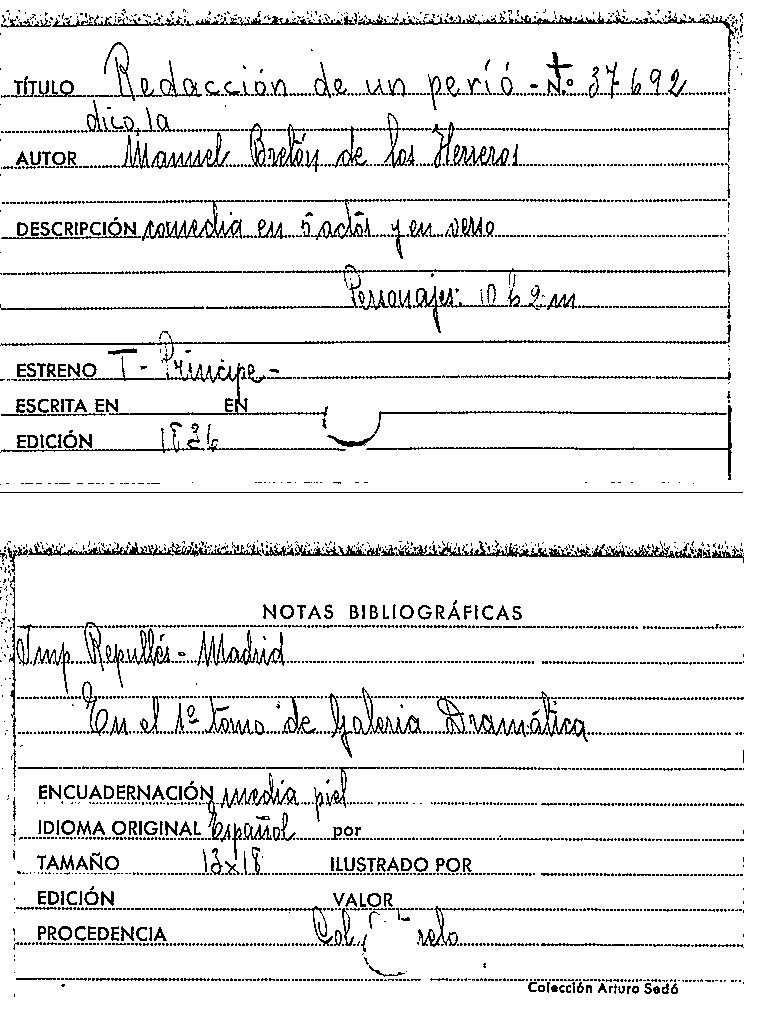 TÍTULO Redacción de un perió - N.º 37692
dico, la
AUTOR Manuel Bretón de los Herreros
DESCRIPCIÓN comedia en 5 actos y en verso
Personajes: 10 h 2 m
ESTRENO T - Príncipe -
ESCRITA EN EN
EDICIÓN 1836
NOTAS BIBLIOGRÁFICAS
Imp Repullés - Madrid
En el 1º tomo de Galeria Dramática
ENCUADERNACIÓN media piel
IDIOMA ORIGINAL Español por
TAMAÑO 13x18 ILUSTRADO POR
EDICIÓN VALOR
PROCEDENCIA Col.
Colección Arturo Sedó